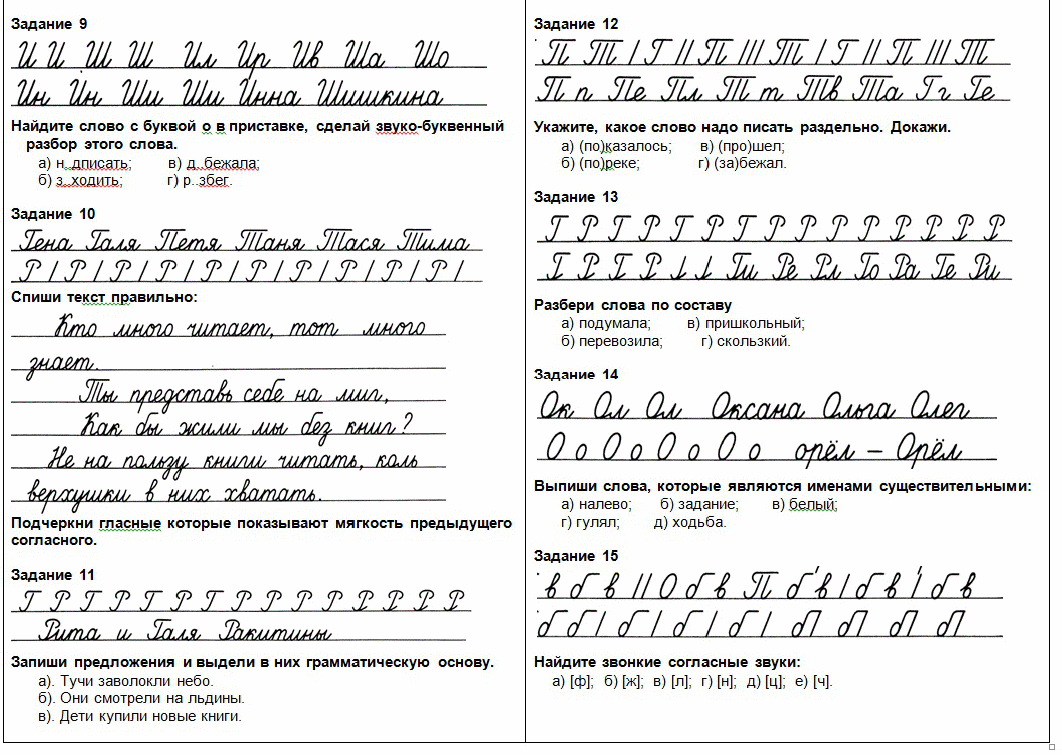 Задание 9
И И Ш Ш Ил Ир Ив Ша Шо
Ин Ин Ши Ши Инна Шишкина
Найдите слово с буквой о в приставке, сделай звуко-буквенный
разбор этого слова.
а) н..дписать; в) д..бежала;
б) з..ходить; г) р..збег.
Задание 10
Гена Галя Петя Таня Тася Тима
Р / Р / Р / Р / Р / Р / Р / Р / Р / Р /
Спиши текст правильно:
Кто много читает, тот много
знает.
Ты представь себе на миг,
Как бы жили мы без книг?
Не на пользу книги читать, коль
верхушки в них хватать.
Подчеркни гласные которые показывают мягкость предыдущего
согласного.
Задание 11
Г Р Г Р Г Р Г Р Р Р Р Р Р Р Р
Рита и Галя Ракитины
Запиши предложения и выдели в них грамматическую основу.
а). Тучи заволокли небо.
б). Они смотрели на льдины.
в). Дети купили новые книги.
Задание 12
П Т / Г // П /// Т / Г // П /// Т
П п Пе Пл Т т Тв Та Г г Ге
Укажите, какое слово надо писать раздельно. Докажи.
а) (по)казалось; в) (про)шел;
б) (по)реке; г) (за)бежал.
Задание 13
Г Р Г Р Г Р Г Р Р Р Р Р Р Р
Г Р Г Р / / Ги Ре Рл Го Ра Ге Ри
Разбери слова по составу
а) подумала; в) пришкольный;
б) перевозила; г) скользкий.
Задание 14
Ок Ол Ол Оксана Ольга Олег
О о О о О о О о орёл – Орёл
Выпиши слова, которые являются именами существительными:
а) налево; б) задание; в) белый;
г) гулял; д) ходьба.
Задание 15
в б в // О б в П б в / б в / б в
б б / б / б / б / б / бП бП бП бП
Найдите звонкие согласные звуки:
а) [ф]; б) [ж]; в) [л]; г) [н]; д) [ц]; е) [ч].